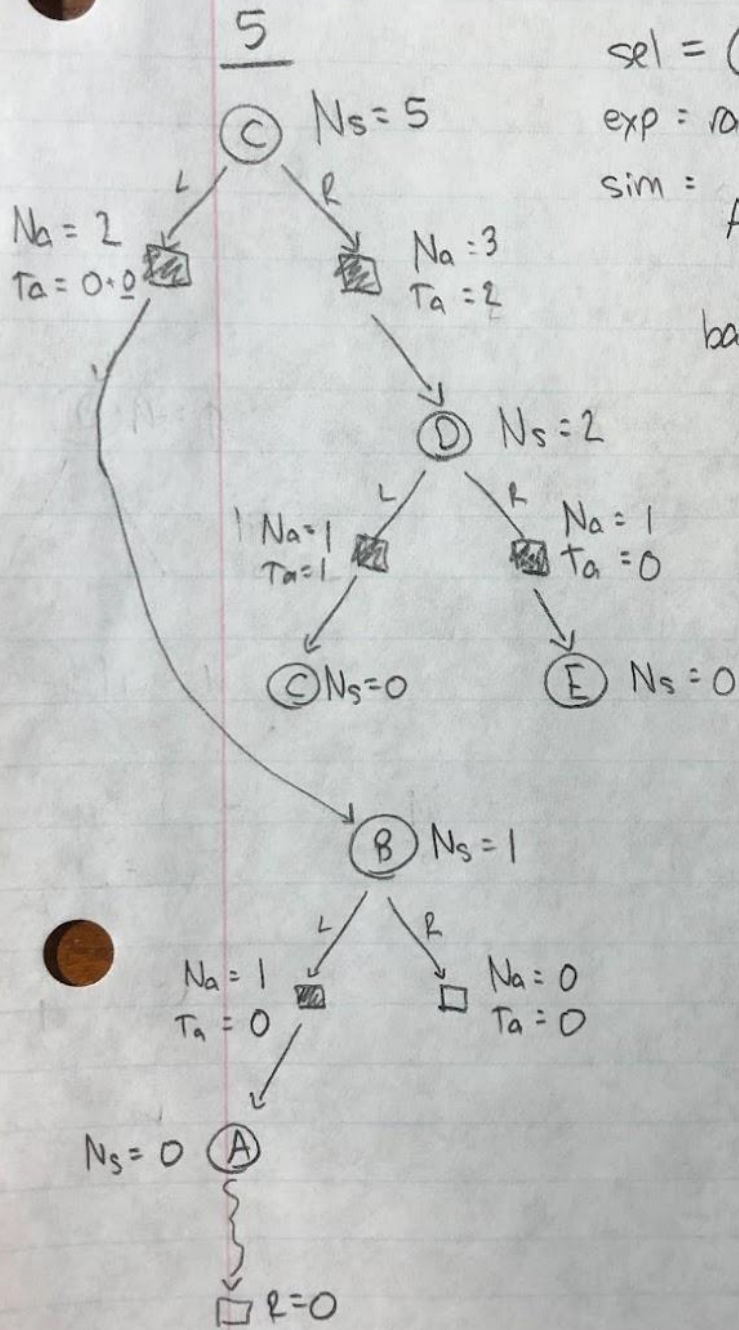 5
sel = (
exp = ra
sim =
ba
C Ns = 5
L R
Na = 2
Ta = 0+0
Na = 3
Ta = 2
D Ns = 2
L R
Na = 1
Ta = 1
Na = 1
Ta = 0
C Ns = 0
E Ns = 0
B Ns = 1
L R
Na = 1
Ta = 0
Na = 0
Ta = 0
Ns = 0 A
R = 0